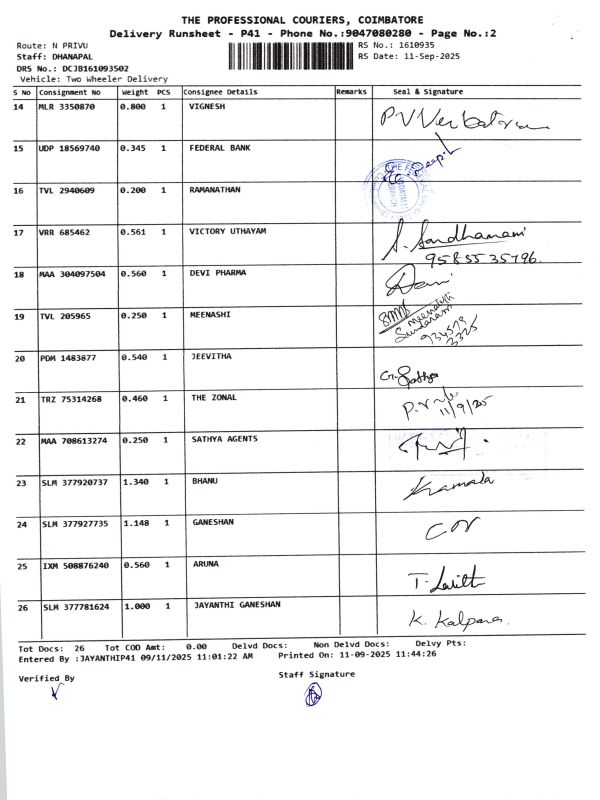 THE PROFESSIONAL COURIERS, COIMBATORE
Delivery Runsheet - P41 - Phone No.:9047080280 - Page No.:2
Route: N PRIVU
RS No.: 1610935
Staff: DHANAPAL
RS Date: 11-Sep-2025
DRS No.: DCJB161093502
Vehicle: Two Wheeler Delivery
S No Consignment No Weight PCS Consignee Details Remarks Seal & Signature
14 MLR 3350870 0.800 1 VIGNESH
15 UDP 18569740 0.345 1 FEDERAL BANK
16 TVL 2940609 0.200 1 RAMANATHAN
17 VRR 685462 0.561 1 VICTORY UTHAYAM S. Sandhanami
9585535796.
18 MAA 304097504 0.560 1 DEVI PHARMA Devi
19 TVL 205965 0.250 1 MEENASHI
Meenatchi
Sundaram
20 PDM 1483877 0.540 1 JEEVITHA G. Sathya
21 TRZ 75314268 0.460 1 THE ZONAL
11/9/25
22 MAA 708613274 0.250 1 SATHYA AGENTS
23 SLM 377920737 1.340 1 BHANU Kamala
24 SLM 377927735 1.148 1 GANESHAN
25 IXM 508876240 0.560 1 ARUNA T. Lalith
26 SLM 377781624 1.000 1 JAYANTHI GANESHAN K. Kalpana.
Tot Docs: 26 Tot COD Amt: 0.00 Delvd Docs: Non Delvd Docs: Delvy Pts:
Entered By :JAYANTHIP41 09/11/2025 11:01:22 AM Printed On: 11-09-2025 11:44:26
Verified By
Staff Signature